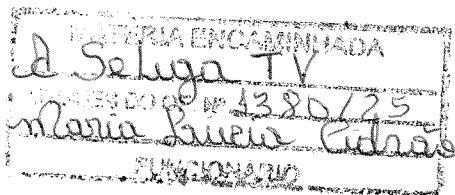 MATÉRIA ENCAMINHADA
A Seluga TV
ATRAVÉS DO OF. Nº 1380/25
Maria Lucia Cidrão
FUNCIONÁRIO